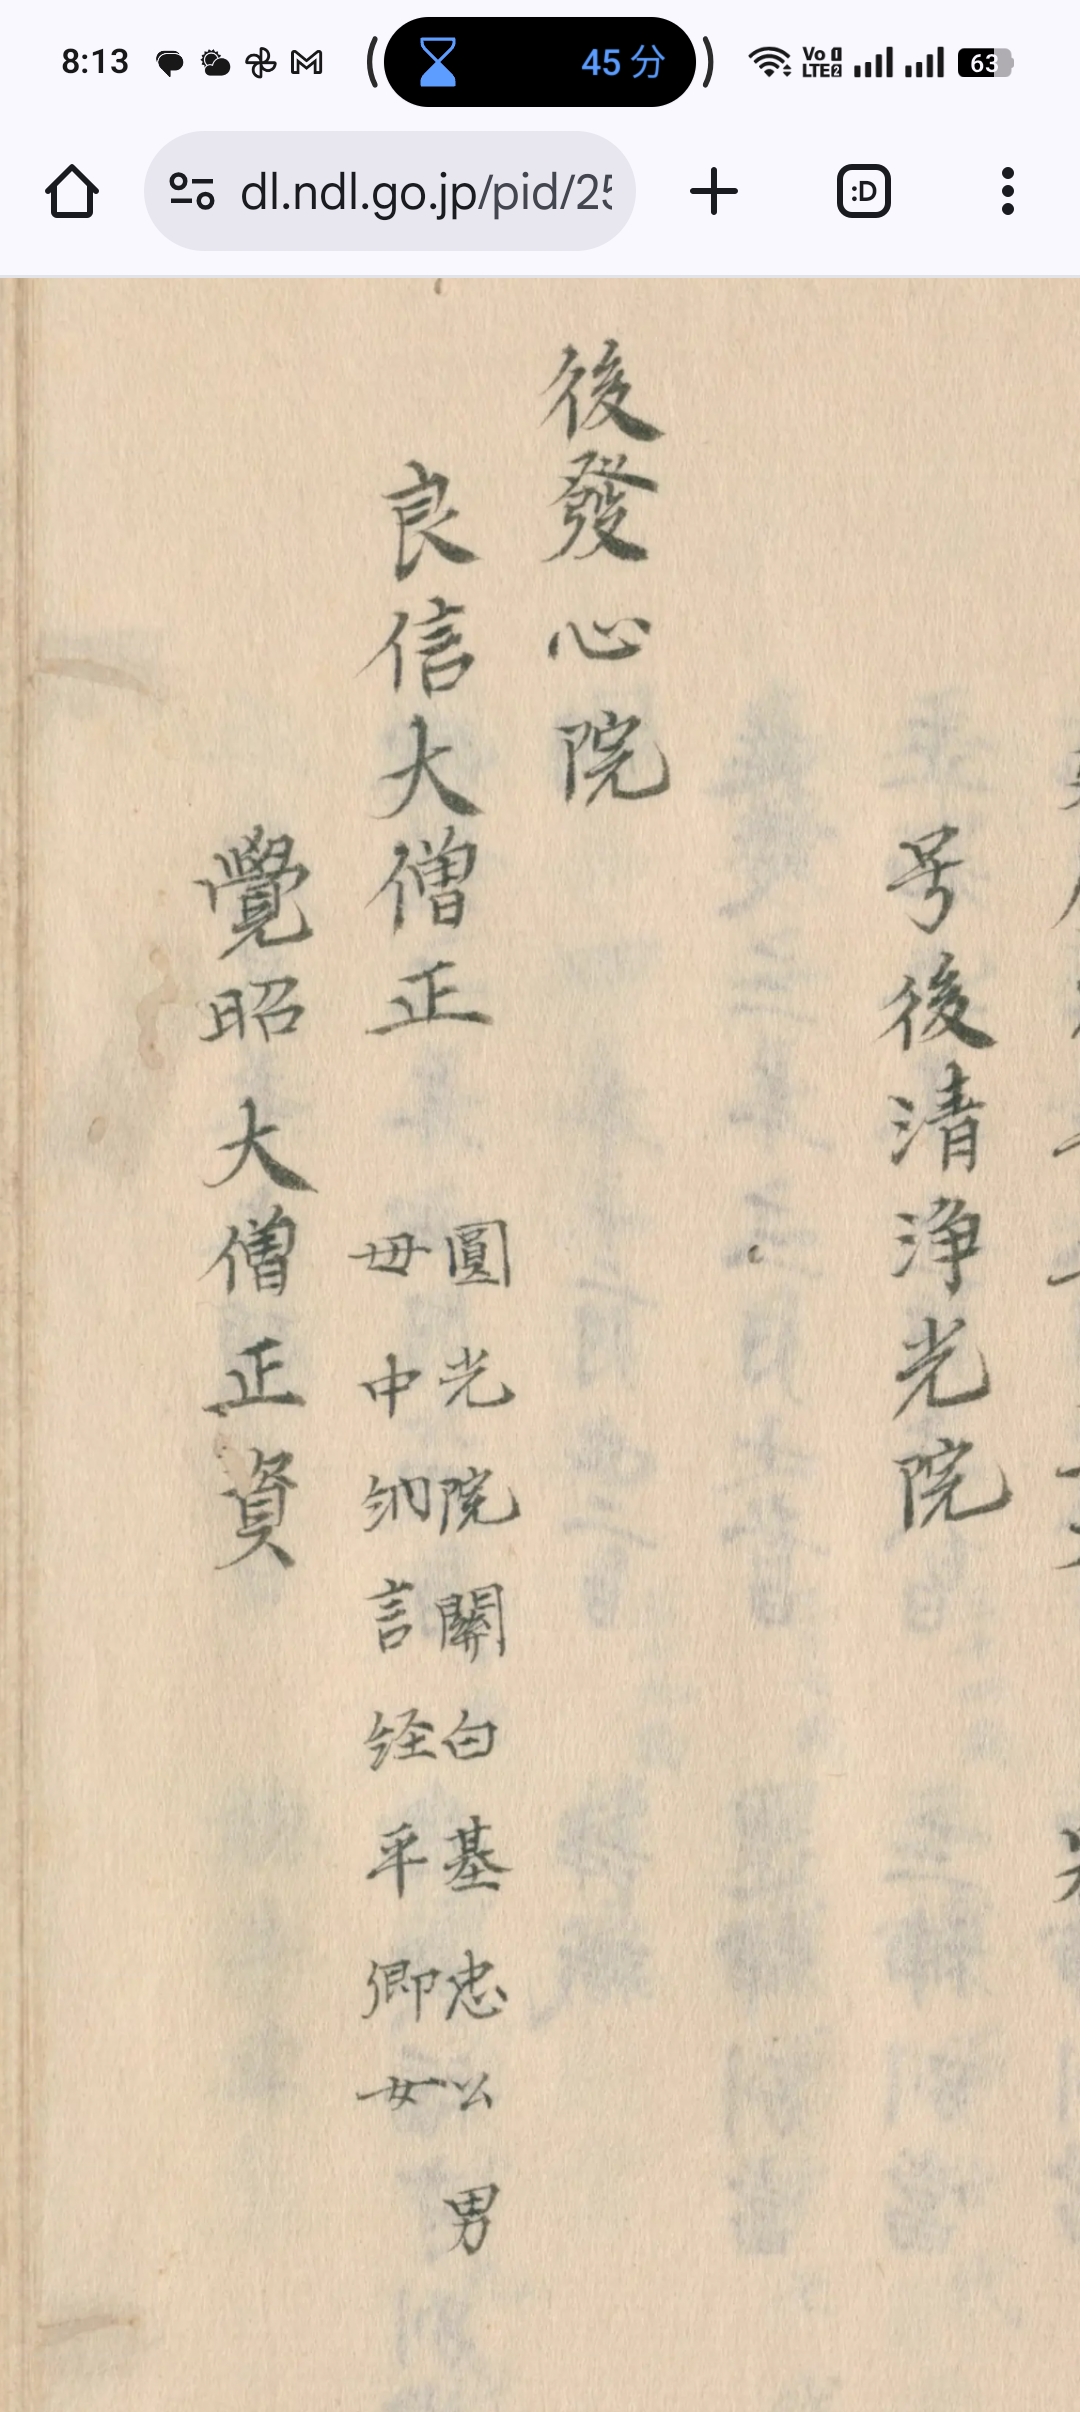 8:13
45 分
Vo 1 LTE2
63
dl.ndl.go.jp/pid/25
:D
号後清浄光院
後發心院
良信大僧正
圓光院關白基忠公男
母中納言経平卿女
覺昭大僧正資